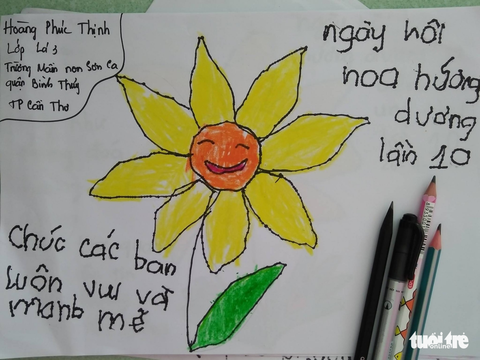 Hoàng Phúc Thịnh
Lớp Lá 3
Trường Mầm non Sơn Ca
quận Bình Thủy
TP Cần Thơ
ngày hôi
hoa hướng
dương
lần 10
Chúc các ban
luôn vui và
manh mẽ
tuổi trẻ
online